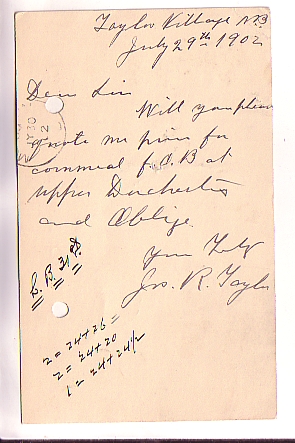 Taylor Village N.B
July 29th 1902
Dear Sir
Will you please
quote me price for
cornmeal f.O.B at
upper Dorchester
and Oblige
Your Truly
Jos. R. Taylor
L. B. 31st
2 = 24 + 26 =
2 = 24 + 20
1 = 24 + 24 1/2